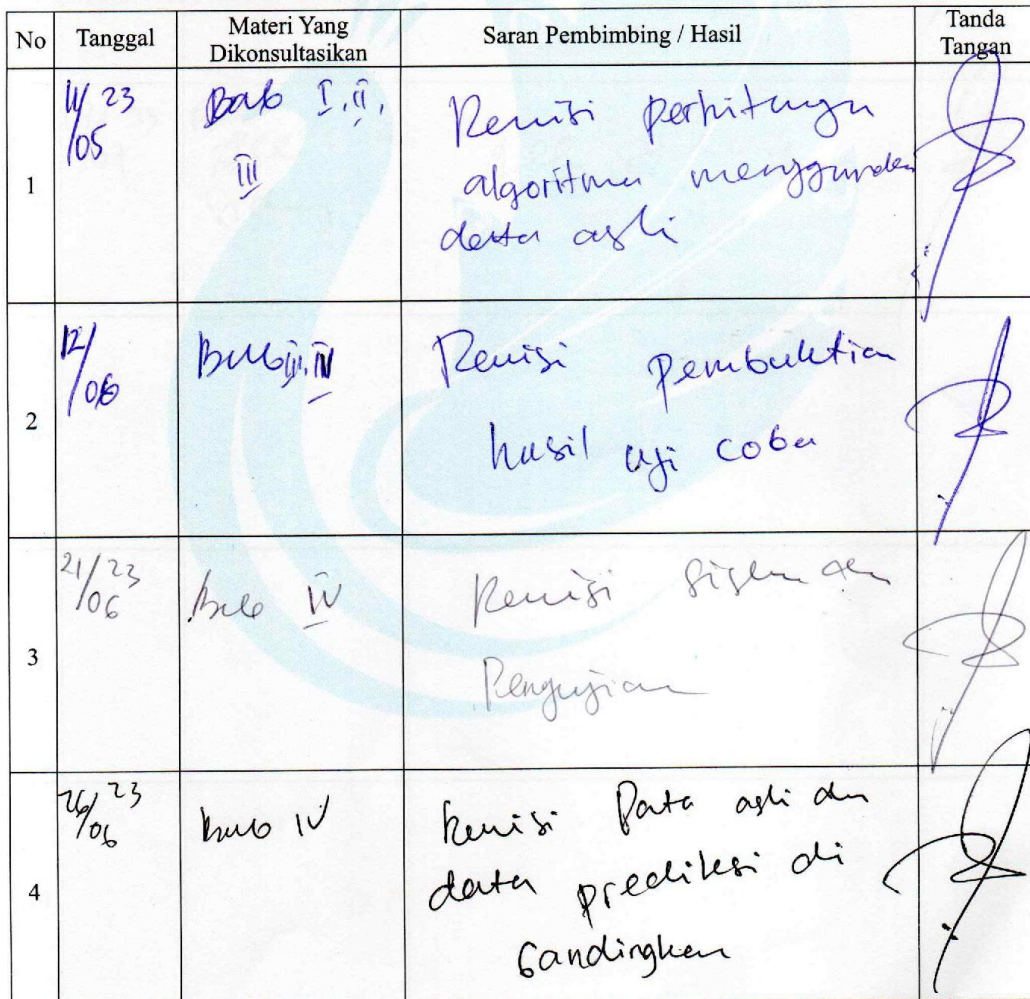 No Tanggal Materi Yang Dikonsultasikan Saran Pembimbing / Hasil Tanda Tangan
1
11/05 23
Bab I, II,
III
Revisi perhitungan
algoritma menggunakan
data asli
2
12/06
Bab III, IV
Revisi pembuktian
hasil uji coba
3
21/06 23
Bab IV
Revisi Sistem dan
Pengujian
4
26/06 23
bab IV
Revisi Data asli dan
data prediksi di
bandingkan